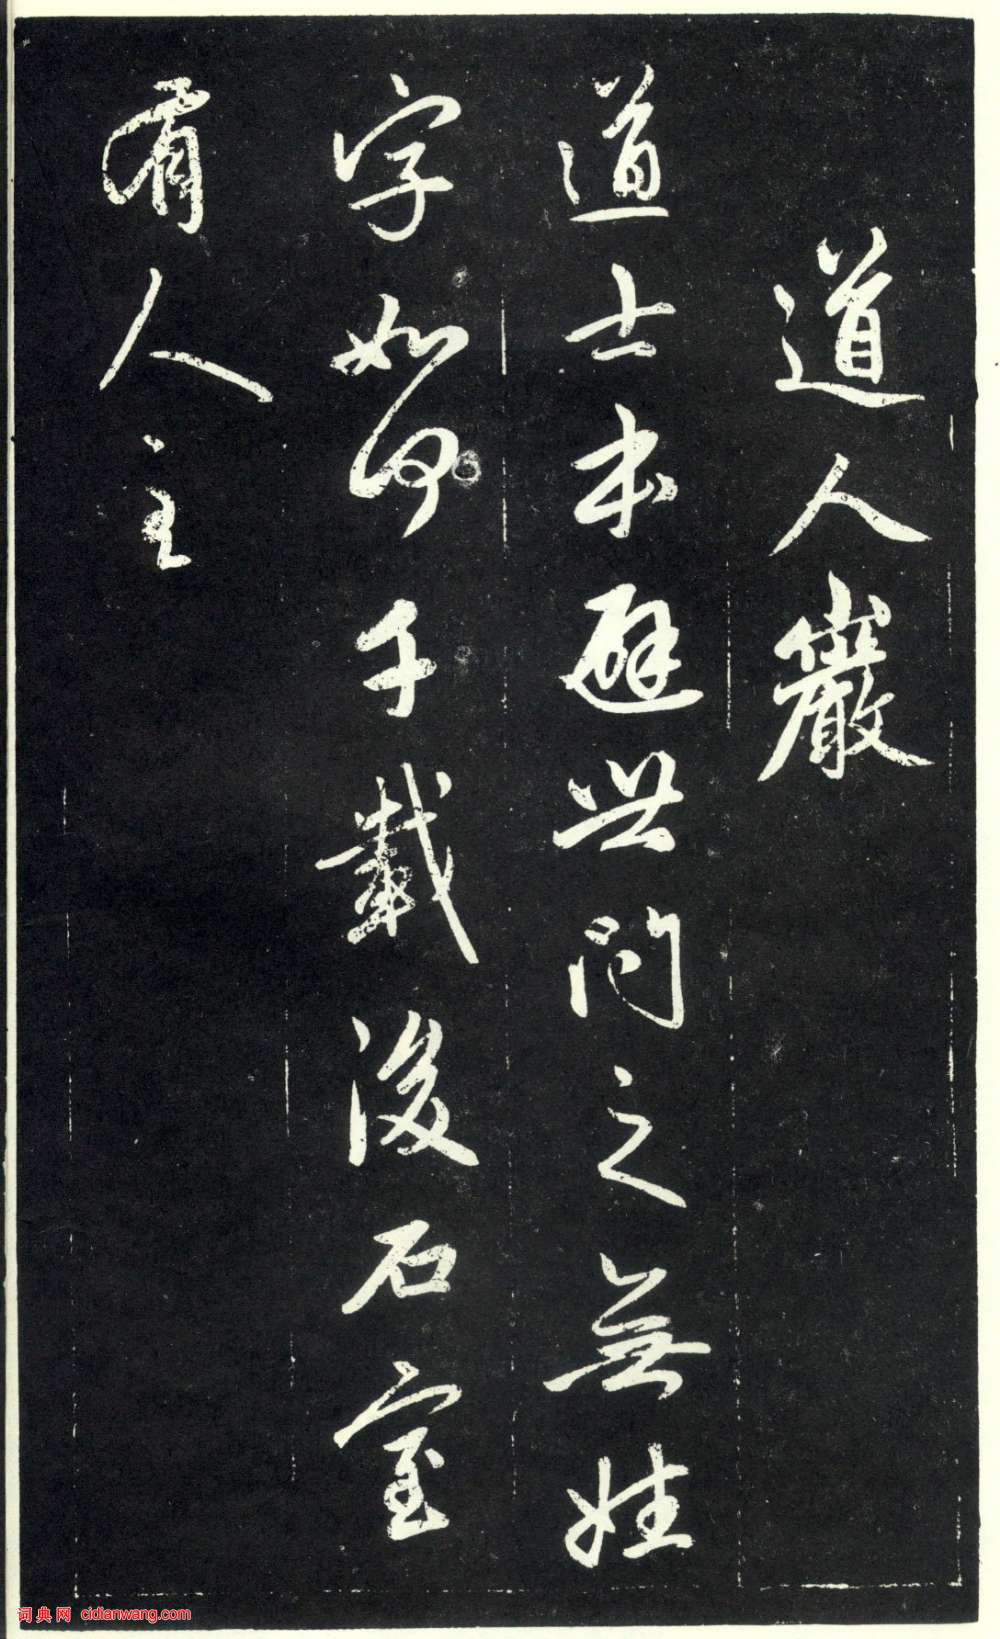 道人巖
道士本避世問之無姓
字如何千載後石室
有人主
词典网 cidianwang.com